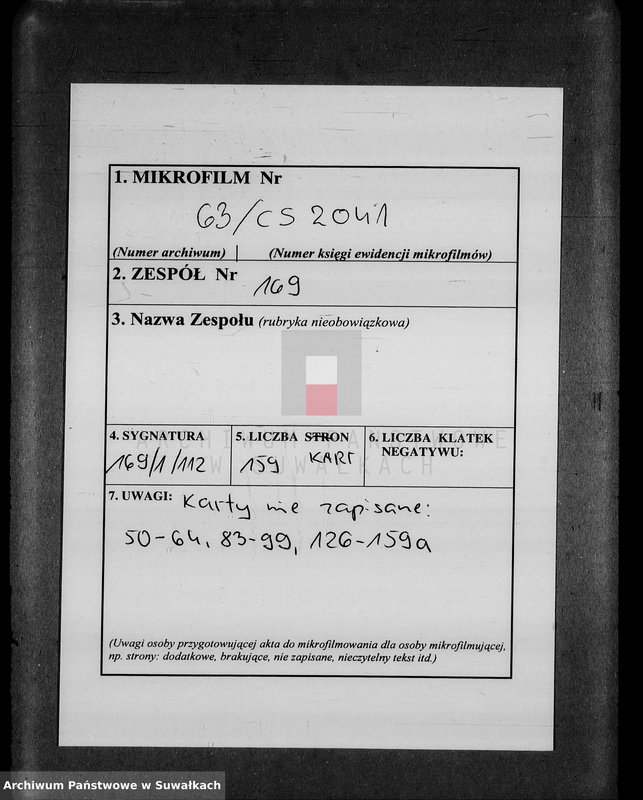 1. MIKROFILM Nr
63/CS 2041
(Numer archiwum) | (Numer księgi ewidencji mikrofilmów)
2. ZESPÓŁ Nr
169
3. Nazwa Zespołu (rubryka nieobowiązkowa)
ARCHIWUM PAŃSTWOWE
W SUWAŁKACH
4. SYGNATURA
169/1/112
5. LICZBA STRON
159 KART
6. LICZBA KLATEK
NEGATYWU:
7. UWAGI: Karty nie zapisane:
50-64, 83-99, 126-159a
(Uwagi osoby przygotowującej akta do mikrofilmowania dla osoby mikrofilmującej,
np. strony: dodatkowe, brakujące, nie zapisane, nieczytelny tekst itd.)
Archiwum Państwowe w Suwałkach